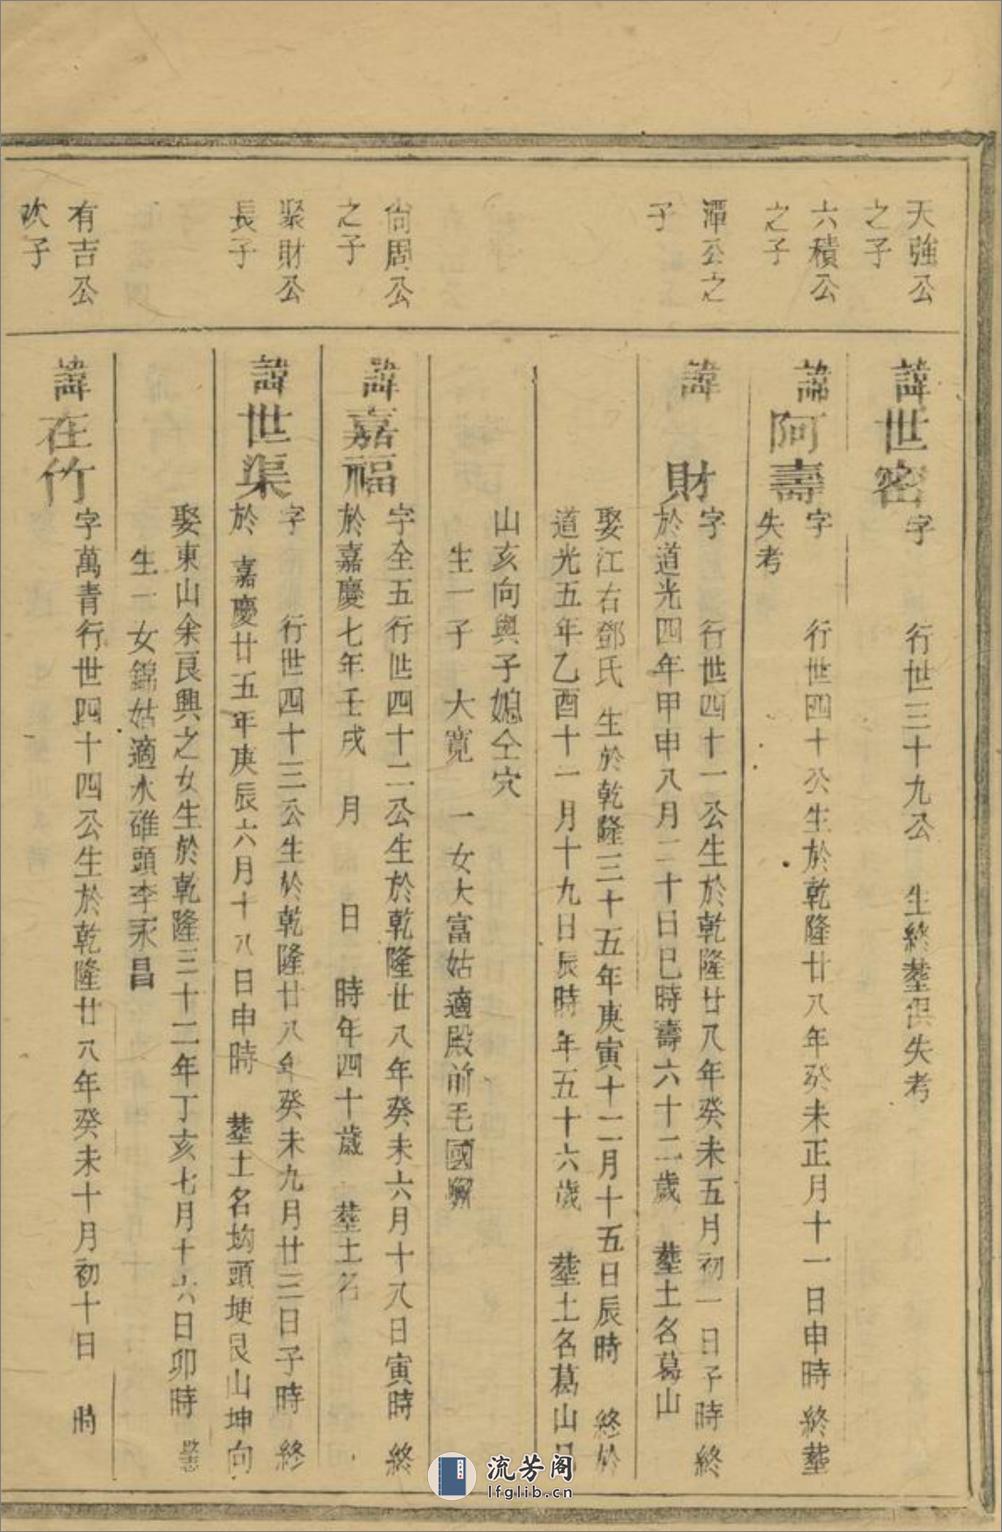 天強公
之子
諱世密
字 行世三十九公 生終塟俱失考
六積公
之子
諱阿壽
字 行世四十公生於乾隆廿八年癸未正月十一日申時終塟
失考
潭公之
子
諱 財
字 行世四十一公生於乾隆廿八年癸未五月初一日子時終
於道光四年甲申八月二十日巳時壽六十二歲 塟土名葛山
娶江右鄧氏 生於乾隆三十五年庚寅十二月十五日辰時 終於
道光五年乙酉十一月十九日辰時年五十六歲 塟土名葛山
山亥向與子媳仝穴
生一子 大寬 一女大富姑適殿前毛國
尙周公
之子
諱嘉福
字全五行世四十二公生於乾隆廿八年癸未六月十八日寅時 終
於嘉慶七年壬戌 月 日 時年四十歲 塟土名
聚財公
長子
諱世渠
字 行世四十三公生於乾隆廿八年癸未九月廿三日子時 終
於 嘉慶廿五年庚辰六月十八日申時 塟土名坳頭埂艮山坤向
娶東山余良興之女生於乾隆三十二年丁亥七月十六日卯時
生一女錦姑適水碓頭李永昌
有吉公
次子
諱在竹
字萬青行世四十四公生於乾隆廿八年癸未十月初十日 時
流芳阁
lfglib.cn